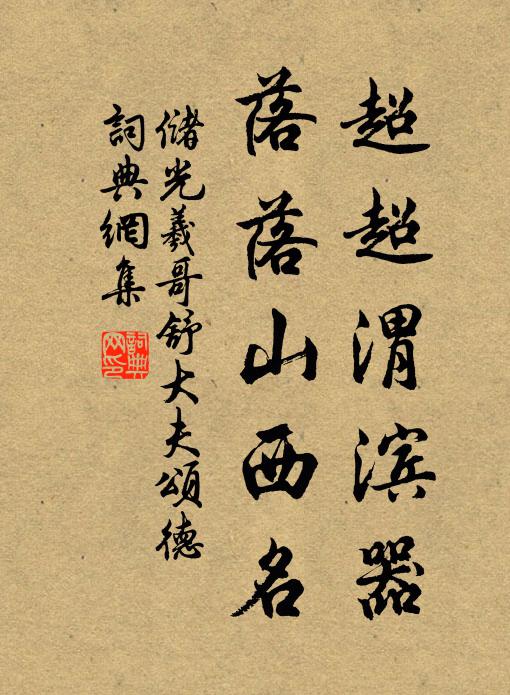 超超渭滨器
落落山西名
儲光羲哥舒大夫頌德
詞典網集
詞典网印